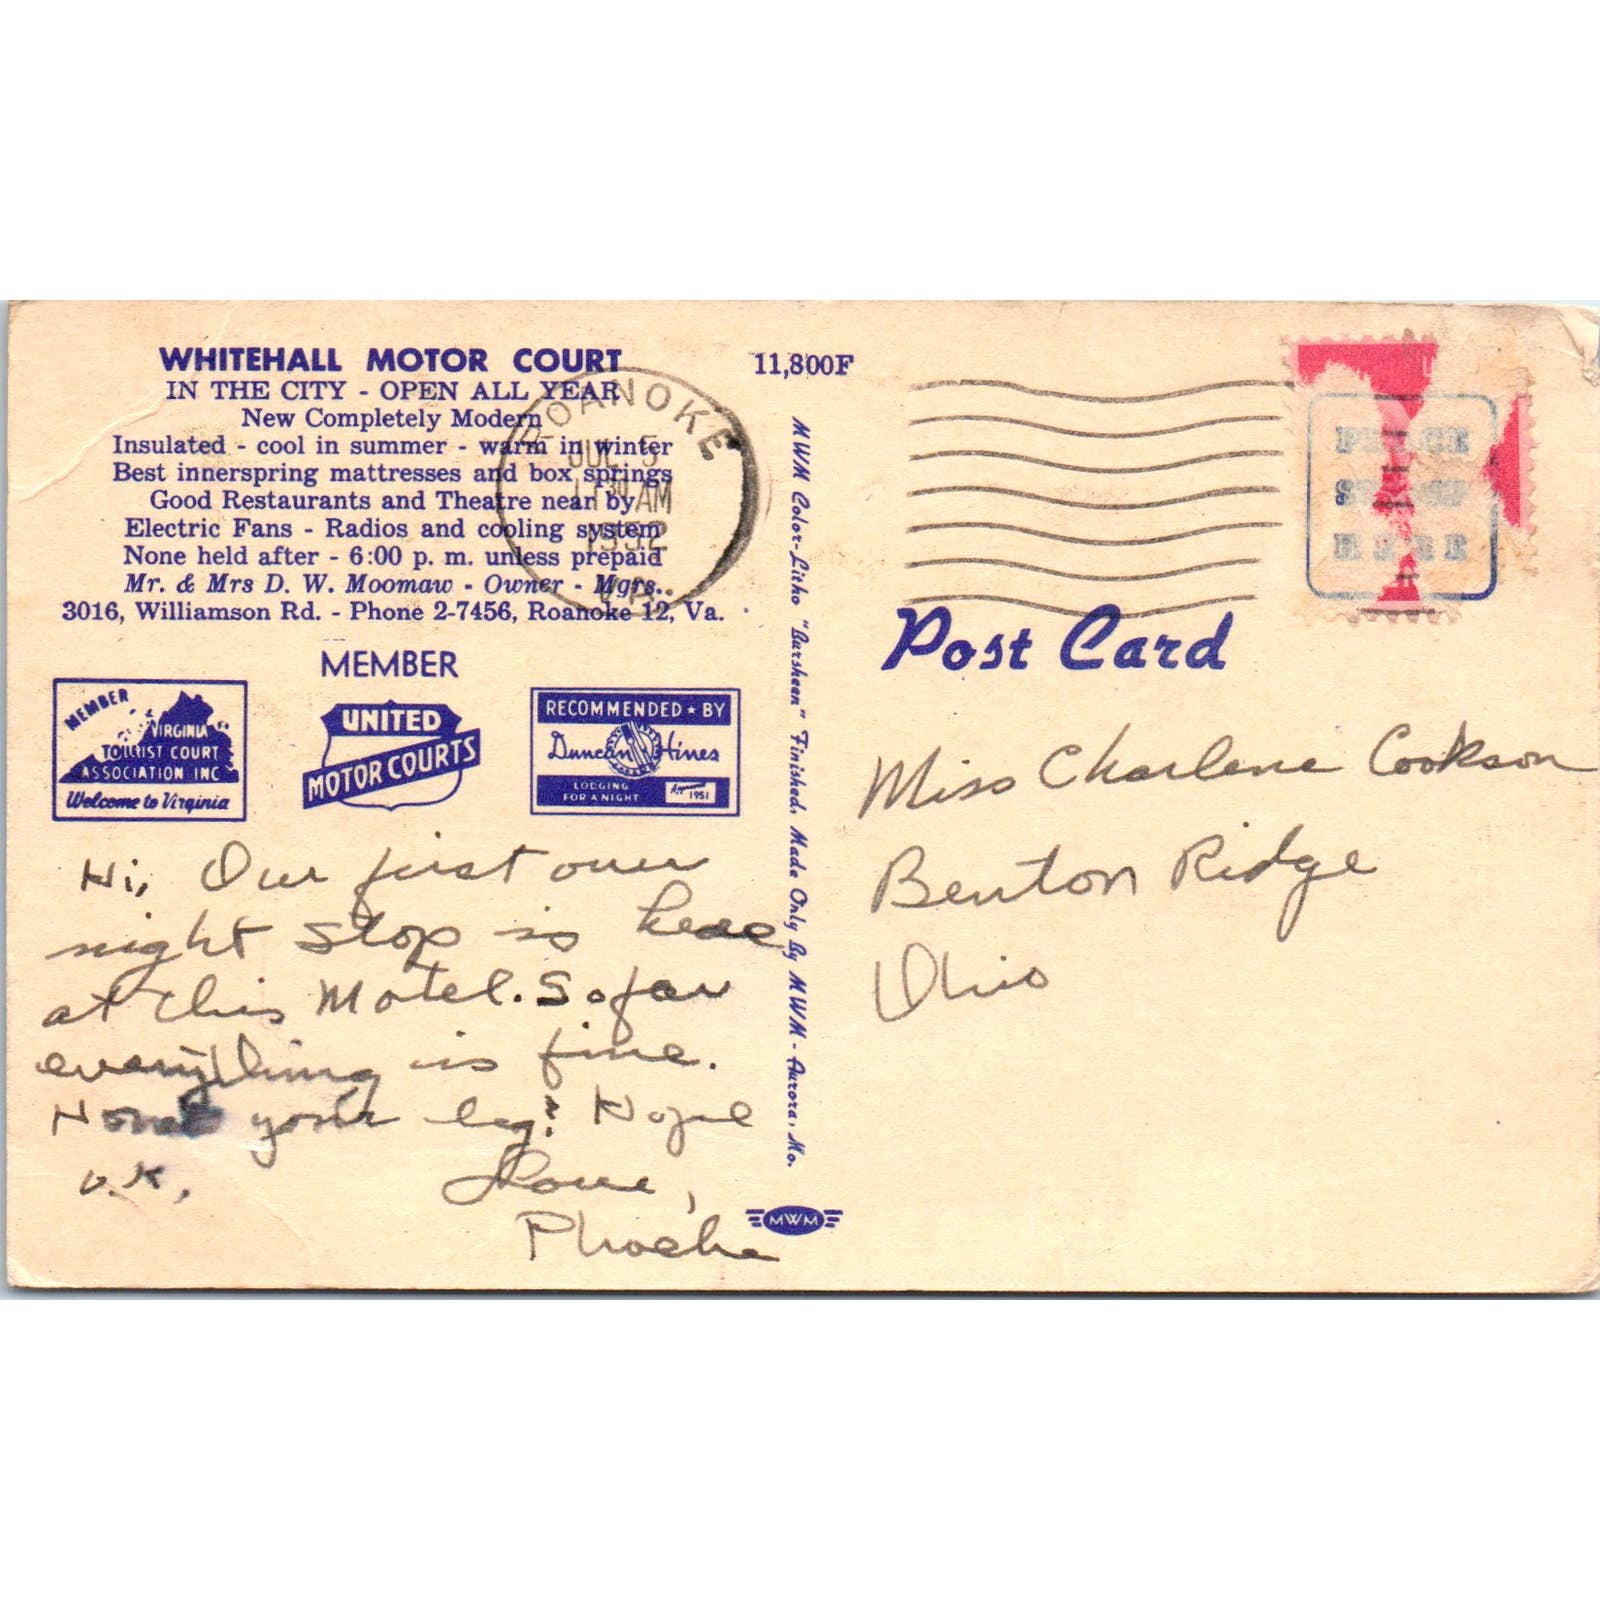 WHITEHALL MOTOR COURT
IN THE CITY - OPEN ALL YEAR
New Completely Modern
Insulated - cool in summer - warm in winter
Best innerspring mattresses and box springs
Good Restaurants and Theatre near by
Electric Fans - Radios and cooling system
None held after - 6:00 p. m. unless prepaid
Mr. & Mrs D. W. Moomaw - Owner - Mgrs.
3016, Williamson Rd. - Phone 2-7456, Roanoke 12, Va.
MEMBER
MEMBER
VIRGINIA
TOURIST COURT
ASSOCIATION INC
Welcome to Virginia
UNITED
MOTOR COURTS
RECOMMENDED ★ BY
Duncan Hines
LODGING
FOR A NIGHT
1951
Hi, Our first over
night stop is here
at this Motel. So far
everything is fine.
your leg? Hope
O.K,
Love,
Phoebe
11,800F
ROANOKE
JUL 5
AM
1952
VA.
MWM Color-Litho "Bursheen" Finished. Made Only By MWM - Aurora, Mo.
MWM
PLACE
STAMP
HERE
Post Card
Miss Charlene Cookson
Benton Ridge
Ohio